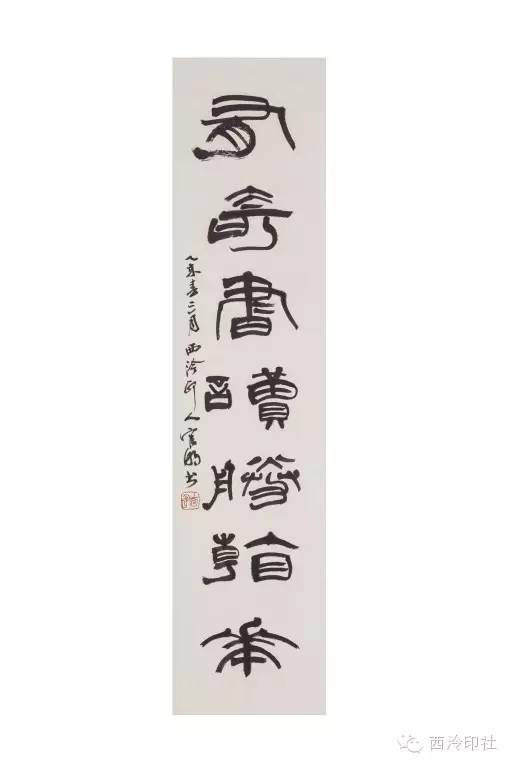 有奇書讀勝看華
乙未春三月西泠印人書
西泠印社